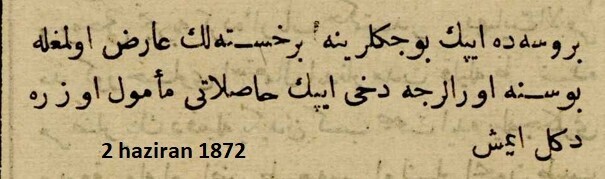 بروسه‌ده ایپك بوجكلرینه برخسته‌لك عارض اولمغله
بوسنه اورالرجه دخی ایپك حاصلاتی مأمول اوزره
دكل ایمش
2 haziran 1872